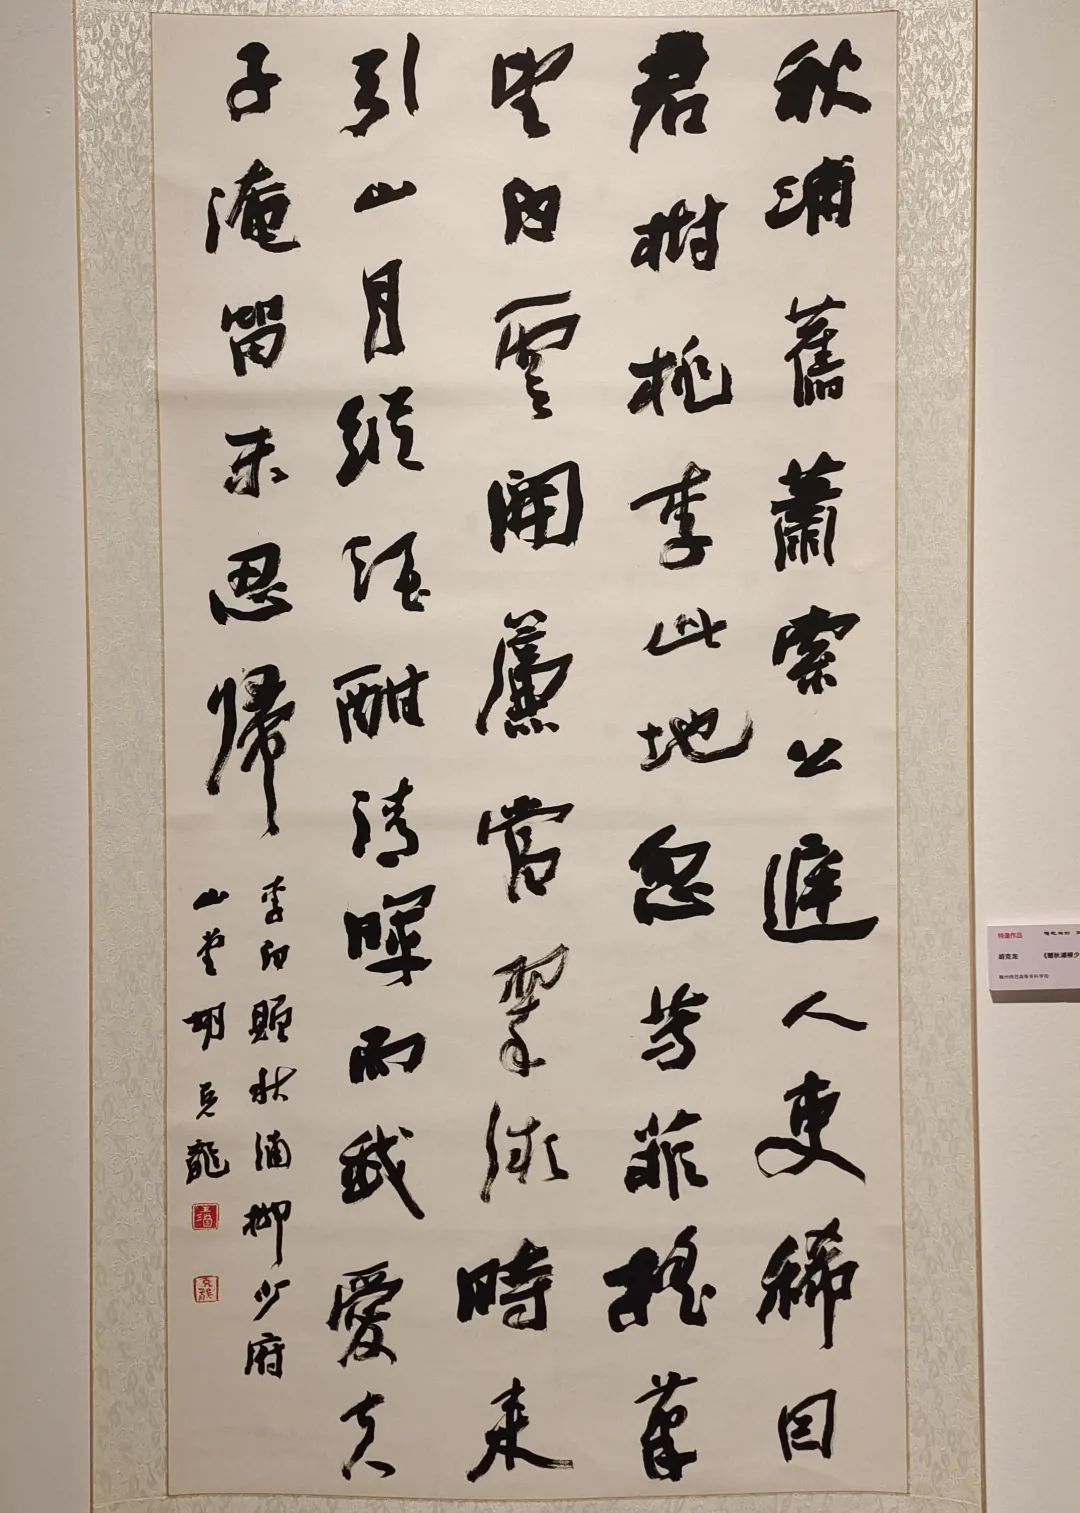 秋浦舊蕭索公庭人吏稀因
君樹桃李此地忽芳菲搖筆
望白雲開簾當翠微時來
引山月縱酒酣清暉而我愛夫
子淹留未忍歸
李白贈秋浦柳少府
山堂胡克龍
特邀作品
胡克龙 《赠秋浦柳少
赣州师范高等专科学校